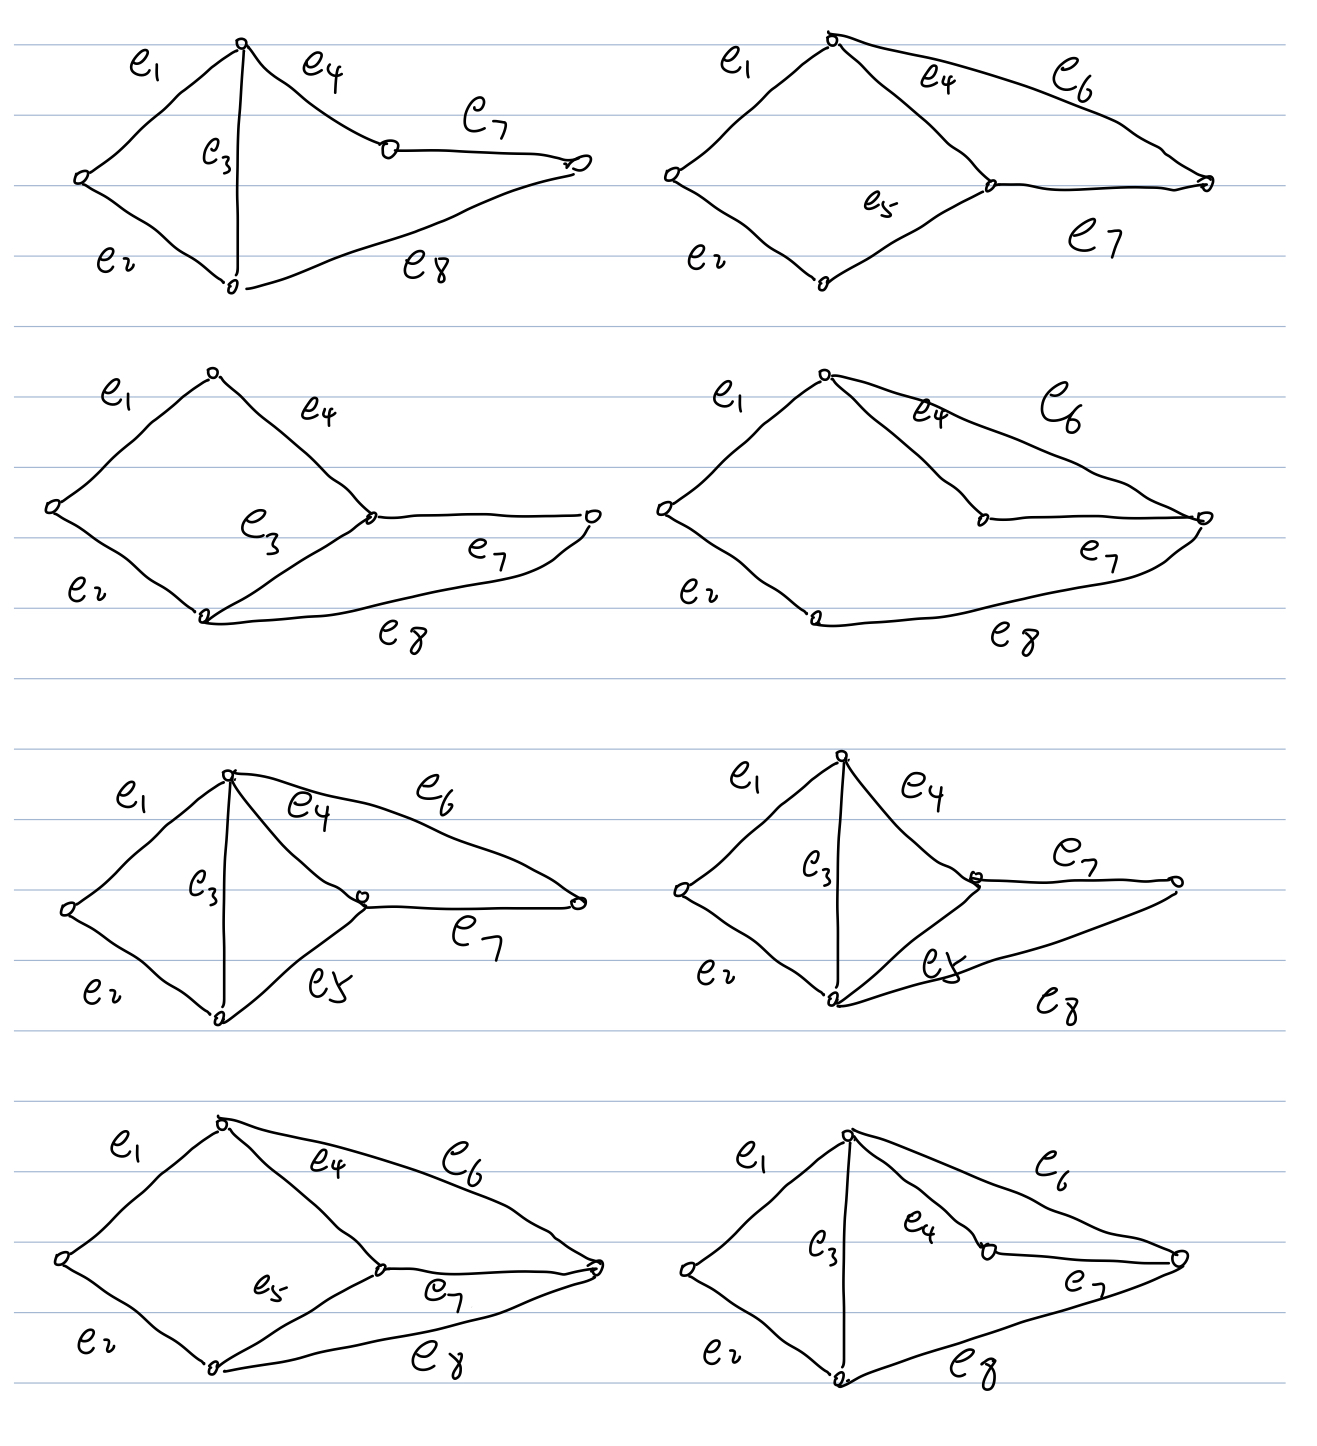 e1 e4 e7
e3
e2 e8
e1 e4 e6
e5
e2 e7
e1 e4
e3 e7
e2 e8
e1 e4 e6
e7
e2 e8
e1 e4 e6
e3 e7
e2 e5
e1 e4 e7
e3
e2 e5 e8
e1 e4 e6
e5 e7
e2 e8
e1 e6
e3 e4 e7
e2 e8